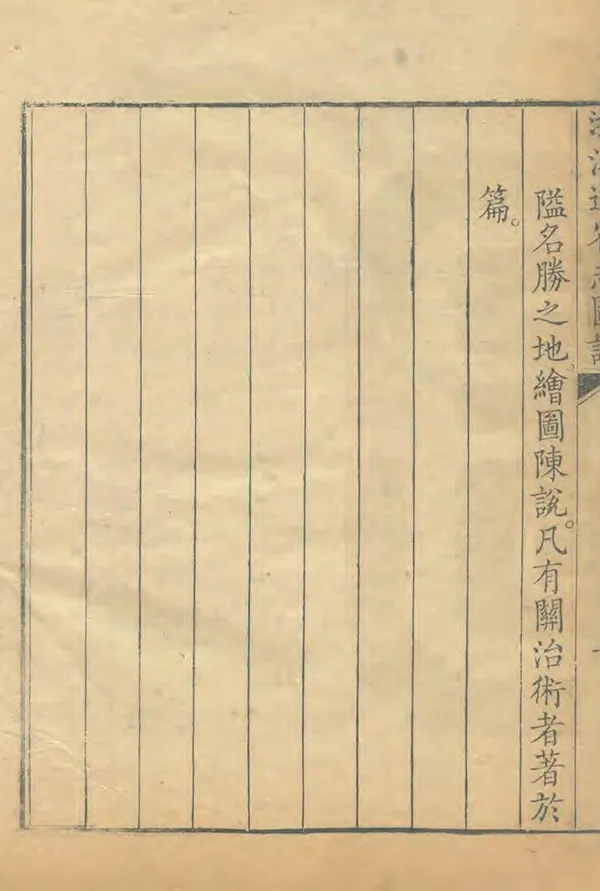 隘名勝之地。繪圖陳說。凡有關治術者著於
篇。